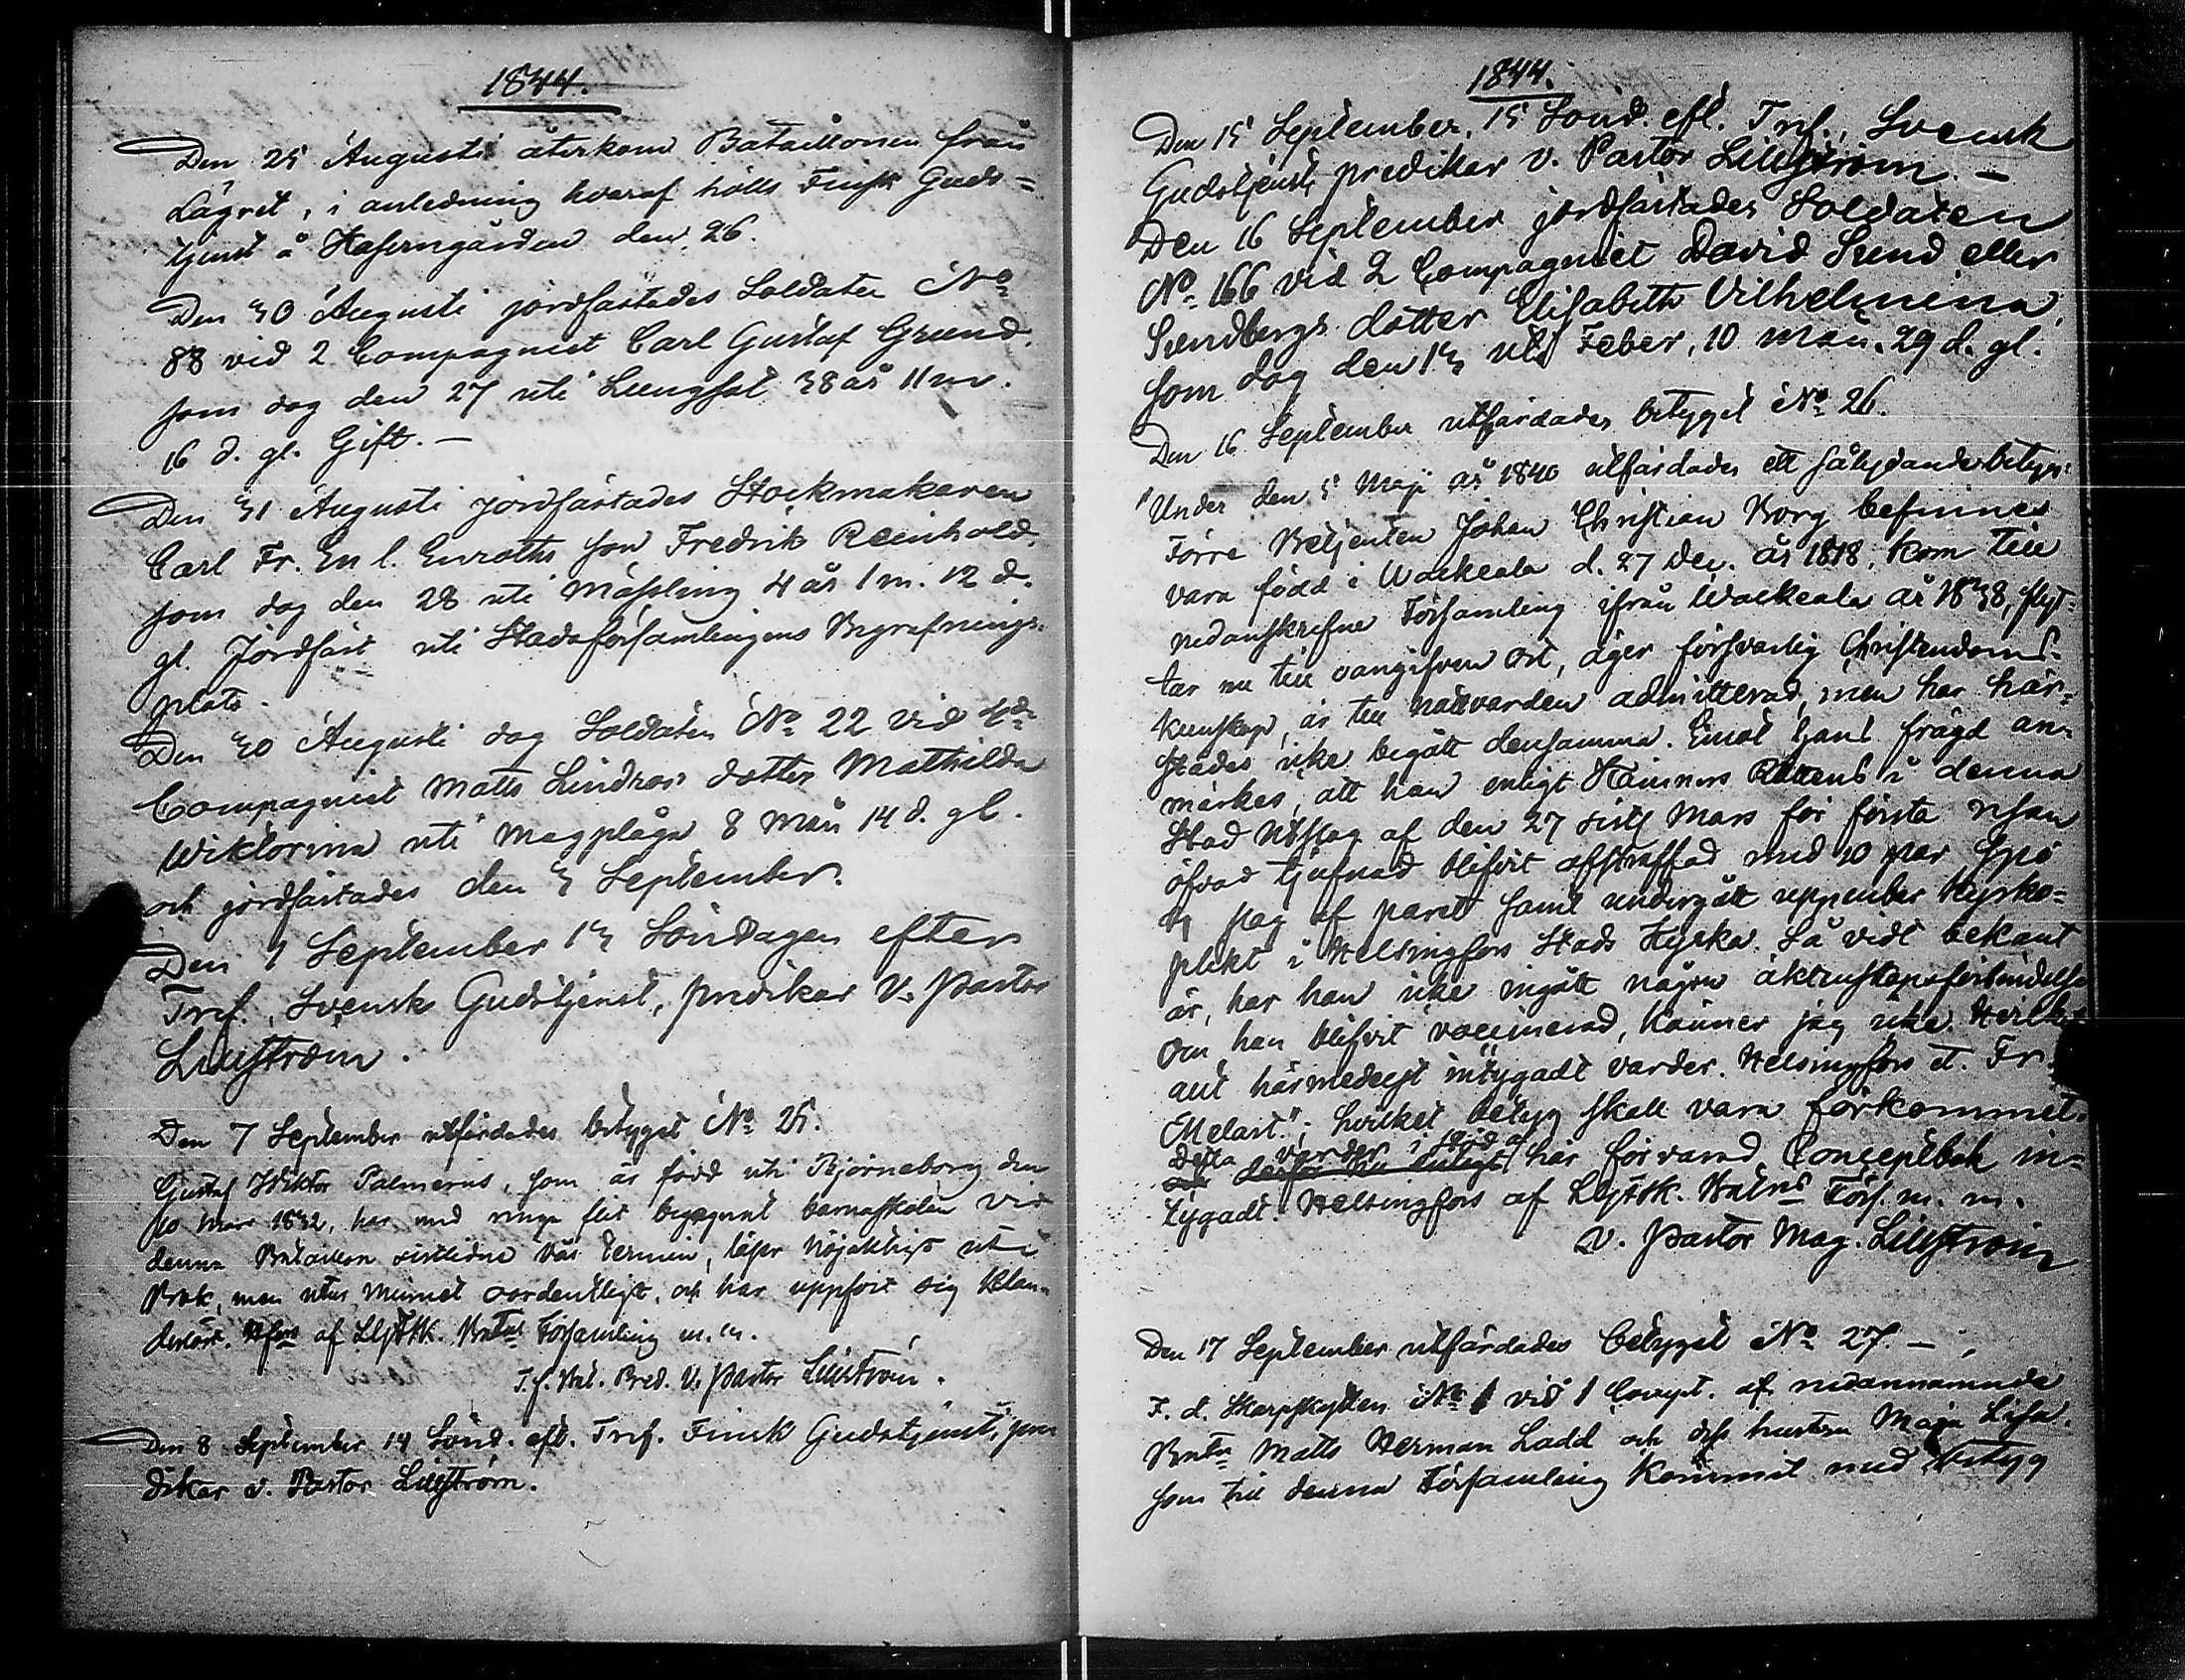 1844.
Den 25 Augusti återkom Bataillonen från
Lägret, i anledning hvaraf hölls Finsk Guds-
tjenst å Kaserngården den 26.
Den 30 Augusti jordfästades Soldaten No
88 vid 2 Compagniet Carl Gustaf Grund.
som dog den 27 uti Lungsot 38 år 11 m.
16 d. gl. Gift. -
Den 31 Augusti jordfästades Stockmakaren
Carl Fr. En l. Enroths son Fredrik Reinhold,
som dog den 28 uti Mässling 4 år 1 m. 12 d.
gl. Jordfäst uti Stadsförsamlingens Begrafnings-
plats.
Den 30 Augusti dog Soldaten No 22 vid
Compagniet Matts Lindroos dotter Mathilda
Wiktorina uti Magplåga 8 mån 14 d. gl.
och jordfästades den 3 September.
Den 1 September 13 Söndagen efter
Tref. Svensk Gudstjenst, predikar V. Pastor
Lillström.
Den 7 September utfärdades betyget No 25.
Gustaf Wiktor Palmerus, som är född uti Björneborg den
10 Mars 1832, har med ringa flit begagnat barnaskolan vid
denna Bataillon sistlidne Vår Termin, läser nöjaktligt uti
Bok, men utur Minnet oordentligt, och har uppfört sig klan-
derlöst. Hfors af LgFSK. Batns Församling m. m.
T. f. Bat. Pred. V. Pastor Lillström.
Den 8 September 14 Sönd. eft. Tref. Finsk Gudstjenst, pre-
dikar v. Pastor Lillström.
1844.
Den 15 September, 15 Sönd. eft. Tref., Svensk
Gudstjenst, predikar v. Pastor Lillström. -
Den 16 September jordfästades Soldaten
No 166 vid 2 Compagniet David Sund eller
Sundbergs dotter Elisabeth Vilhelmina,
som dog den 13 uti Feber, 10 mån. 29 d. gl.
Den 16 September utfärdades betyget No 26.
"Under den 5 Maji år 1840 utfärdades ett sålydande betyg:
Förre Betjenten Johan Christian Borg befinnes
vara född i Walkeala d. 27 Dec. år 1818, kom till
nedanskrefne Församling ifrån Walkeala år 1838, flyt-
tar nu till oangifven ort, äger försvarlig Christendoms-
kunskap, är till nattvarden admitterad, men har här-
städes icke begått densamma. Emot hans frägd an-
märkes, att han enligt Kämners Rättens i denna
Stad Utslag af den 27 sistl Mars för första resan
öfvad tjufnad blifvit afstraffad med 10 par spö
3 slag af paret samt undergått uppenbar Kyrko-
plikt i Helsingfors Stads Kyrka. Så vidt bekant
är, har han icke ingått någon äktenskapsförbindelse
Om han blifvit vaccinerad, känner jag icke. Hvilket
allt härmedelst intygadt varder. Helsingfors et. Fr.
Melart."; hvilket betyg skall vara förkommet.
Detta varder i stöd af
här förvarad Conceptbok in-
tygadt. Helsingfors af LgFSK. Batns Förs. m. m.
V. Pastor Mag. Lillström
Den 17 September utfärdades betyget No 27. -
F. d. Skarpskytten No 1 vid 1 Compt. af nedannämnde
Batn Matts Herman Ladd och dess hustru Maja Lisa
som till denna Församling kommit med betyg